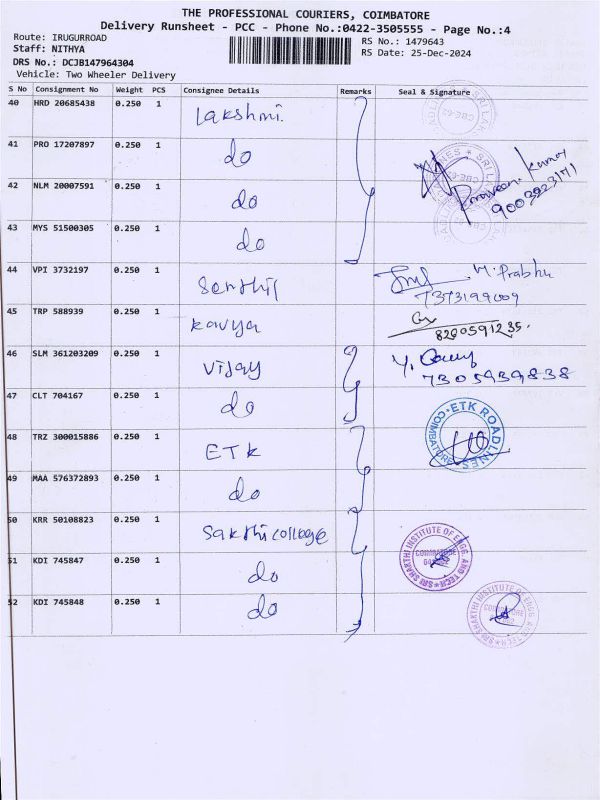 THE PROFESSIONAL COURIERS, COIMBATORE
Delivery Runsheet - PCC - Phone No.:0422-3505555 - Page No.:4
Route: IRUGURROAD
RS No.: 1479643
Staff: NITHYA
RS Date: 25-Dec-2024
DRS No.: DCJB147964304
Vehicle: Two Wheeler Delivery
S No Consignment No Weight PCS Consignee Details Remarks Seal & Signature
40 HRD 20685438 0.250 1 Lakshmi.
41 PRO 17207897 0.250 1 do
42 NLM 20007591 0.250 1 do
Praveen Kumar
43 MYS 51500305 0.250 1 do
44 VPI 3732197 0.250 1 Senthil M. Prabhu
7373199009
45 TRP 588939 0.250 1 Kavya
8200591235.
46 SLM 361203209 0.250 1 Vijay
7305939838
47 CLT 704167 0.250 1 do
48 TRZ 300015886 0.250 1 ETK
ETK ROADLINES
COIMBATORE
49 MAA 576372893 0.250 1 do
50 KRR 50108823 0.250 1 Sakthi college
SRI SHAKTHI INSTITUTE OF ENGG. AND TECH
COIMBATORE
51 KDI 745847 0.250 1 do
52 KDI 745848 0.250 1 do
SRI SHAKTHI INSTITUTE OF ENGG. AND TECH
COIMBATORE